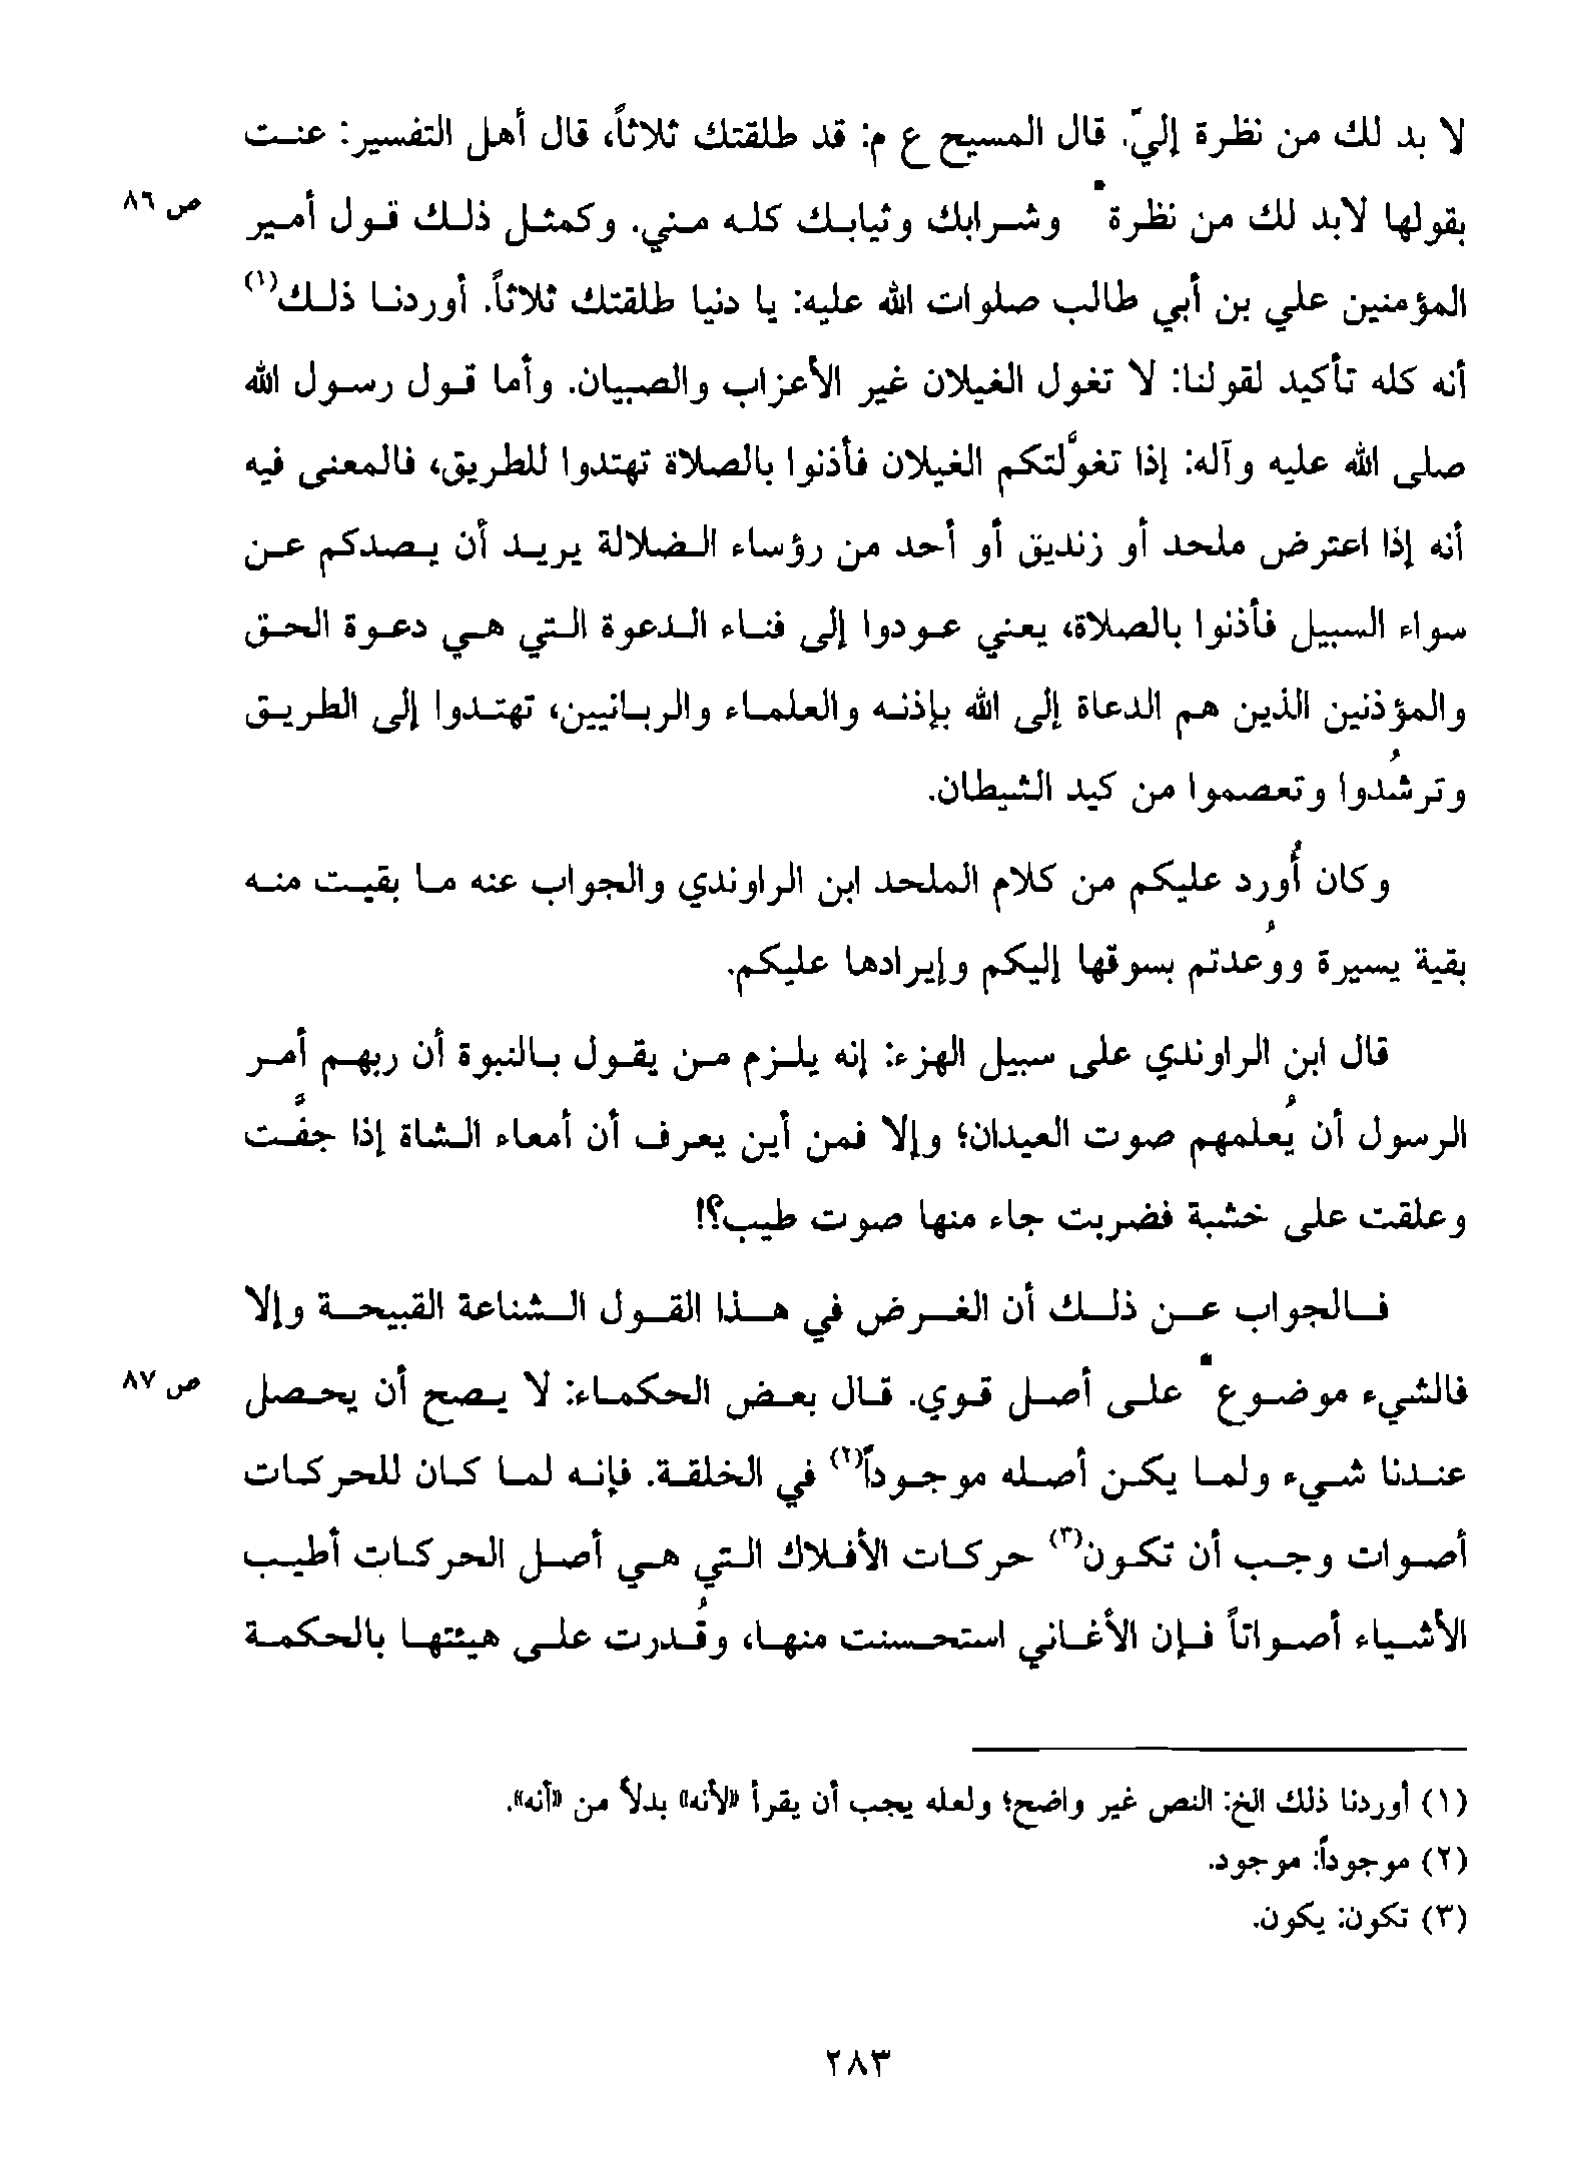 لا بد لك من نظرة إليّ. قال المسيح ع م: قد طلقتك ثلاثاً، قال أهل التفسير: عنت
بقولها لابد لك من نظرة * وشرابك وثيابك كله مني. وكمثل ذلك قول أمير
ص ٨٦
المؤمنين علي بن أبي طالب صلوات الله عليه: يا دنيا طلقتك ثلاثاً. أوردنا ذلك(١)
أنه كله تأكيد لقولنا: لا تغول الغيلان غير الأعزاب والصبيان. وأما قول رسول الله
صلى الله عليه وآله: إذا تغوّلتكم الغيلان فأذنوا بالصلاة تهتدوا للطريق، فالمعنى فيه
أنه إذا اعترض ملحد أو زنديق أو أحد من رؤساء الضلالة يريد أن يصدكم عن
سواء السبيل فأذنوا بالصلاة، يعني عودوا إلى فناء الدعوة التي هي دعوة الحق
والمؤذنين الذين هم الدعاة إلى الله بإذنه والعلماء والربانيين، تهتدوا إلى الطريق
وترشُدوا وتعصموا من كيد الشيطان.
وكان أُورد عليكم من كلام الملحد ابن الراوندي والجواب عنه ما بقيت منه
بقية يسيرة ووُعدتم بسوقها إليكم وإيرادها عليكم.
قال ابن الراوندي على سبيل الهزء: إنه يلزم من يقول بالنبوة أن ربهم أمر
الرسول أن يُعلمهم صوت العيدان؛ وإلا فمن أين يعرف أن أمعاء الشاة إذا جفّت
وعلقت على خشبة فضربت جاء منها صوت طيب؟!
فالجواب عن ذلك أن الغرض في هذا القول الشناعة القبيحة وإلا
فالشيء موضوع * على أصل قوي. قال بعض الحكماء: لا يصح أن يحصل
ص ٨٧
عندنا شيء ولما يكن أصله موجوداً(٢) في الخلقة. فإنه لما كان للحركات
أصوات وجب أن تكون(٣) حركات الأفلاك التي هي أصل الحركات أطيب
الأشياء أصواتاً فإن الأغاني استحسنت منها، وقُدرت على هيئتها بالحكمة
(١) أوردنا ذلك الخ: النص غير واضح؛ ولعله يجب أن يقرأ «لأنه» بدلاً من «أنه».
(٢) موجوداً: موجود.
(٣) تكون: يكون.
٢٨٣